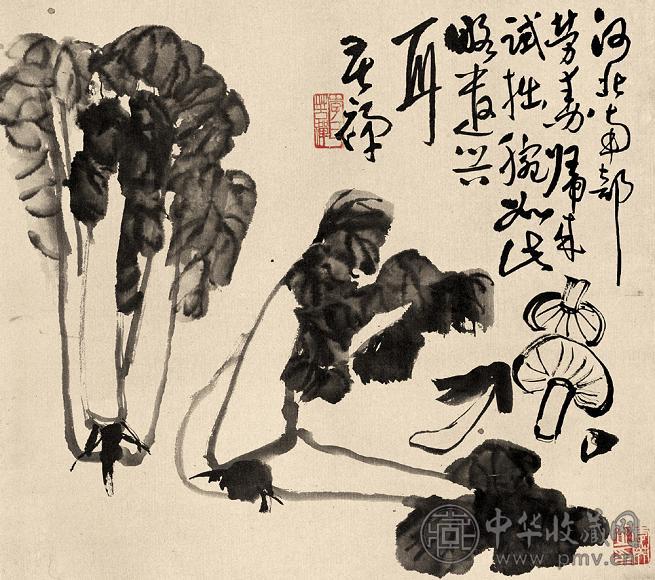 河北南部
劳动归来
试拙腕如此
略遣兴
耳
苦禅
中华收藏网
www.pmv.cn